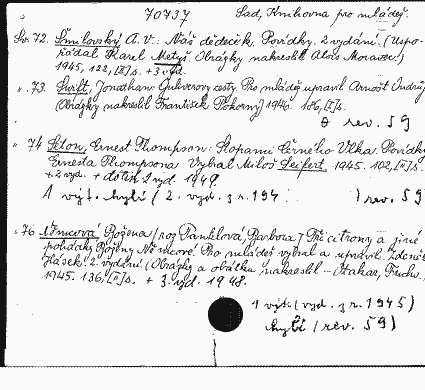 70737 Sad, Knihovna pro mládež.
Sv. 72. Šmilovský A. V.: Náš dědeček, Povídky. 2. vydání. (Uspo-
řádal Karel Metyš. Obrázky nakreslil Alois Moravec.)
1945, 122, [II] s. + 3 vyd.
„ 73. Swift, Jonathan: Guliverovy cesty. Pro mládež upravil Arnošt Jindřy
(Obrázky nakreslil František Pokorný) 1946. 186, [I] s.
rev. 59
„ 74 Seton, Ernest Thompson: Stopami černého Vlka. Povídky
Ernesta Thompsona Vybral Miloš Seifert. 1945. 102, [II] s.
+ 2 vyd. + dotisk 2 vyd. 1947.
1 výt. chybí (2. vyd. z r. 194 ) rev. 59
„ 76 Němcová Božena / roz. Panklová, Barbora / Tři citrony a jiné
pohádky Boženy Němcové. Pro mládež vybral a upravil. Zdeněk
Hlásek. 2. vydání. (Obrázky a obálku nakreslil Otakar,
1945. 136, [II] s. + 3. vyd. 1948.
1 výt. (vyd. z r. 1945)
chybí (rev. 59)